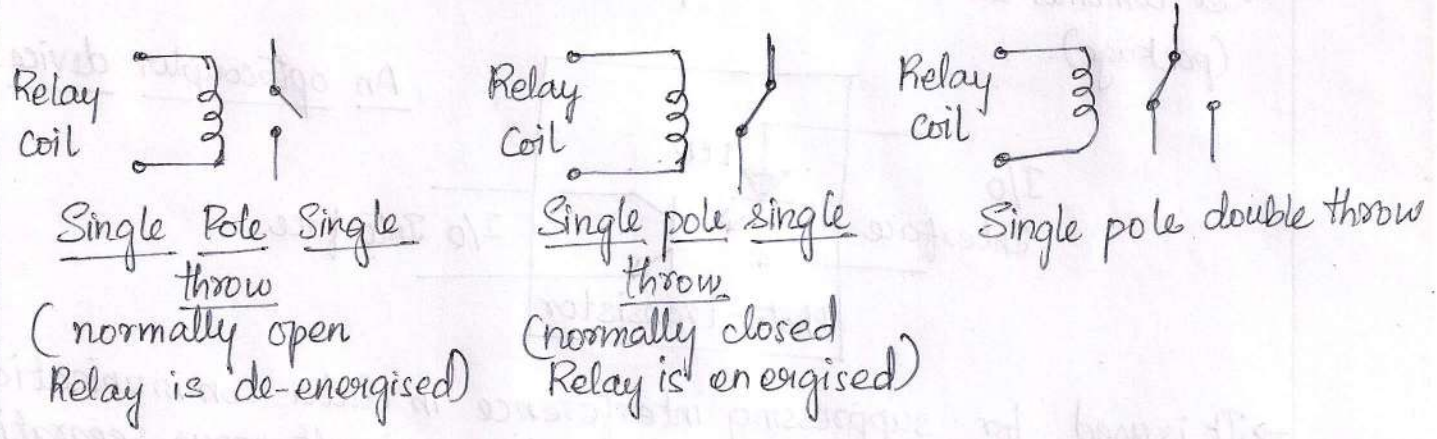 Relay
coil
Single Pole Single
throw
(normally open
Relay is de-energised)
Relay
Coil
Single pole single
throw
(normally closed
Relay is energised)
Relay
coil
Single pole double throw